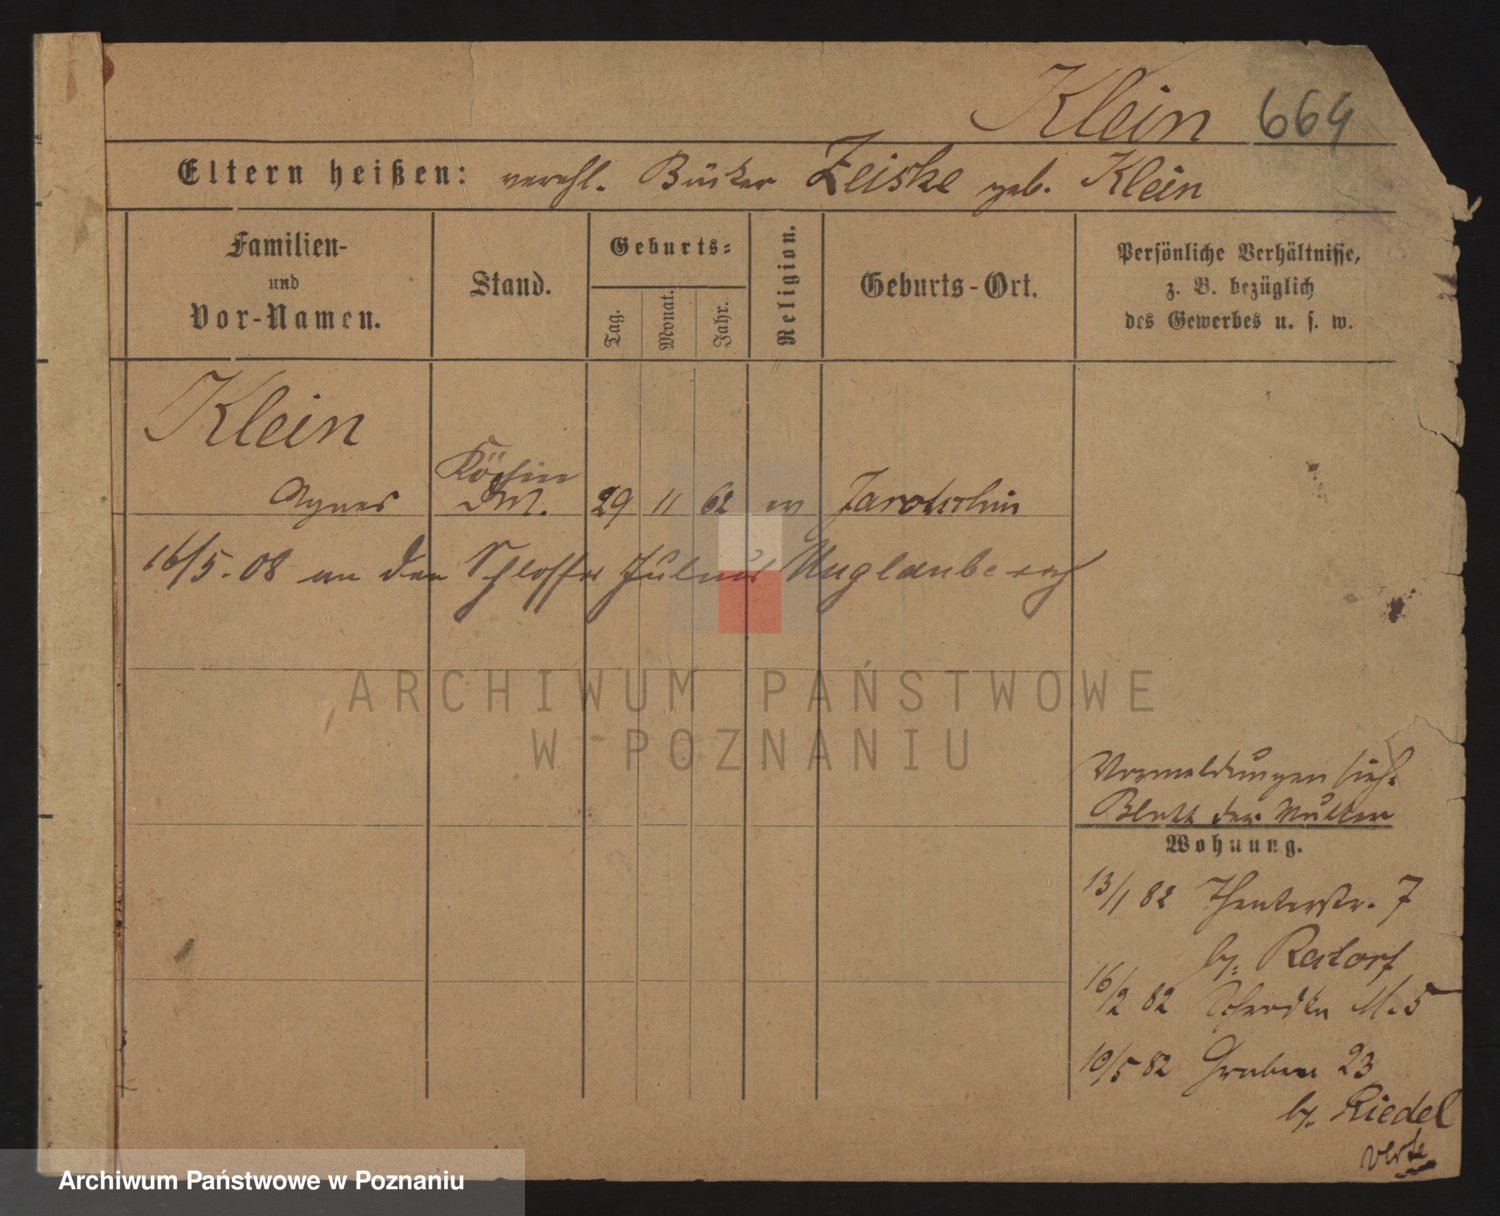 Klein 664
Eltern heißen: verehl. Bäcker Zeiske geb. Klein
Familien-
und
Vor-Namen.
Stand.
Geburts-
Tag.
Monat.
Jahr.
Religion.
Geburts-Ort.
Persönliche Verhältnisse,
z. B. bezüglich
des Gewerbes u. s. w.
Klein
Agnes
Köchin
29 11 62 ev Jarotschin
16/5. 08 an den Schlosser Julius
ARCHIWUM PAŃSTWOWE
W POZNANIU
Vormeldungen sieh.
Blatt der Mutter
Wohnung.
13/1 82 Theaterstr. 7
by. Restorf
16/2 82 M. 5
10/5 82 Graben 23
by. Riedel
verte
Archiwum Państwowe w Poznaniu